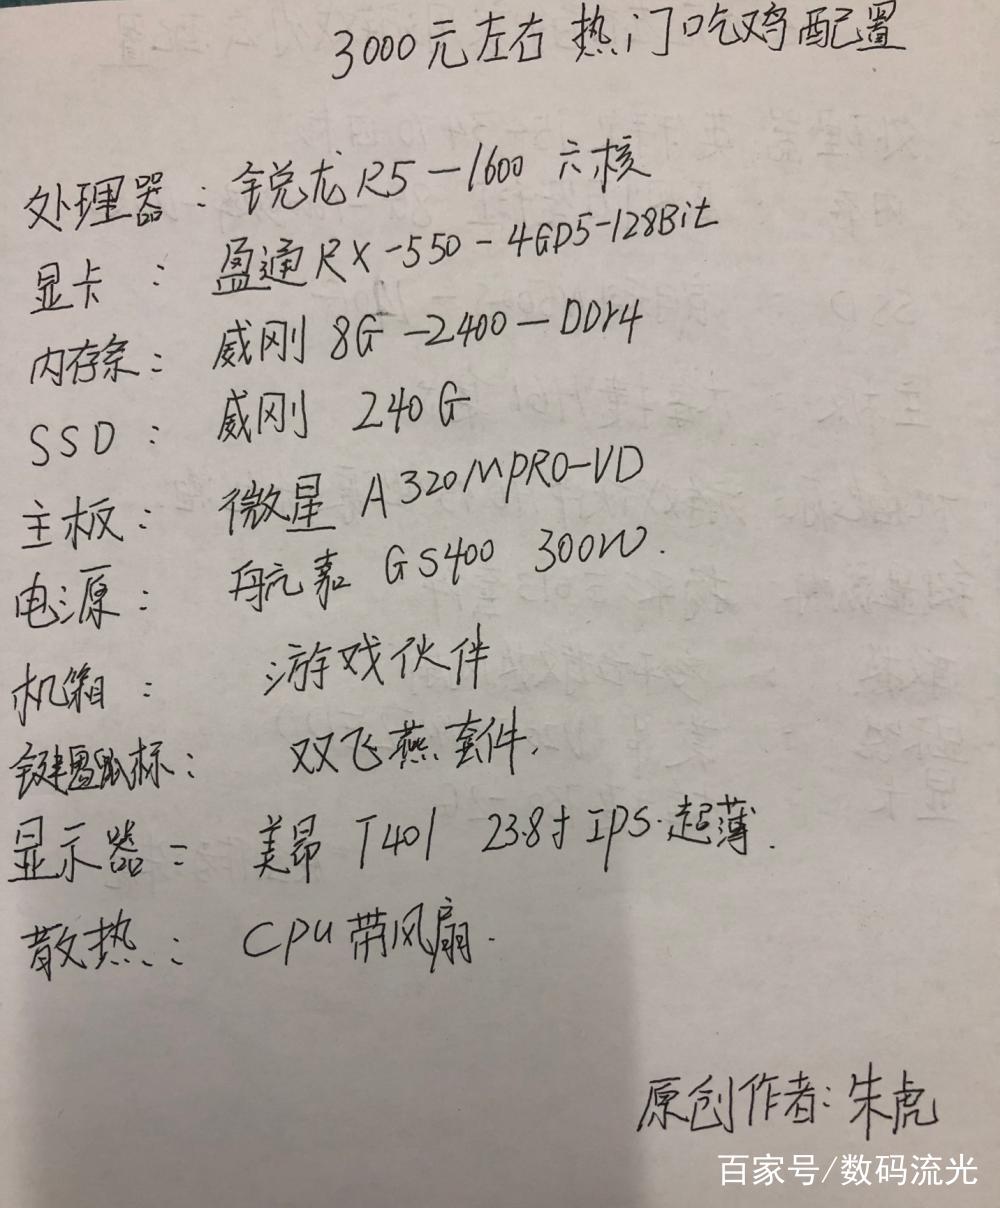 3000元左右热门吃鸡配置
处理器：锐龙R5-1600 六核
显卡：盈通RX-550-4GD5-128Bit
内存条：威刚 8G-2400-DDr4
SSD：威刚 240G
主板：微星 A320MPRO-VD
电源：航嘉 GS400 300W.
机箱：游戏伙伴
键盘鼠标：双飞燕套件.
显示器：美昂 T401 23.8寸IPS.起薄.
散热：CPU带风扇.
原创作者：朱虎
百家号/数码流光